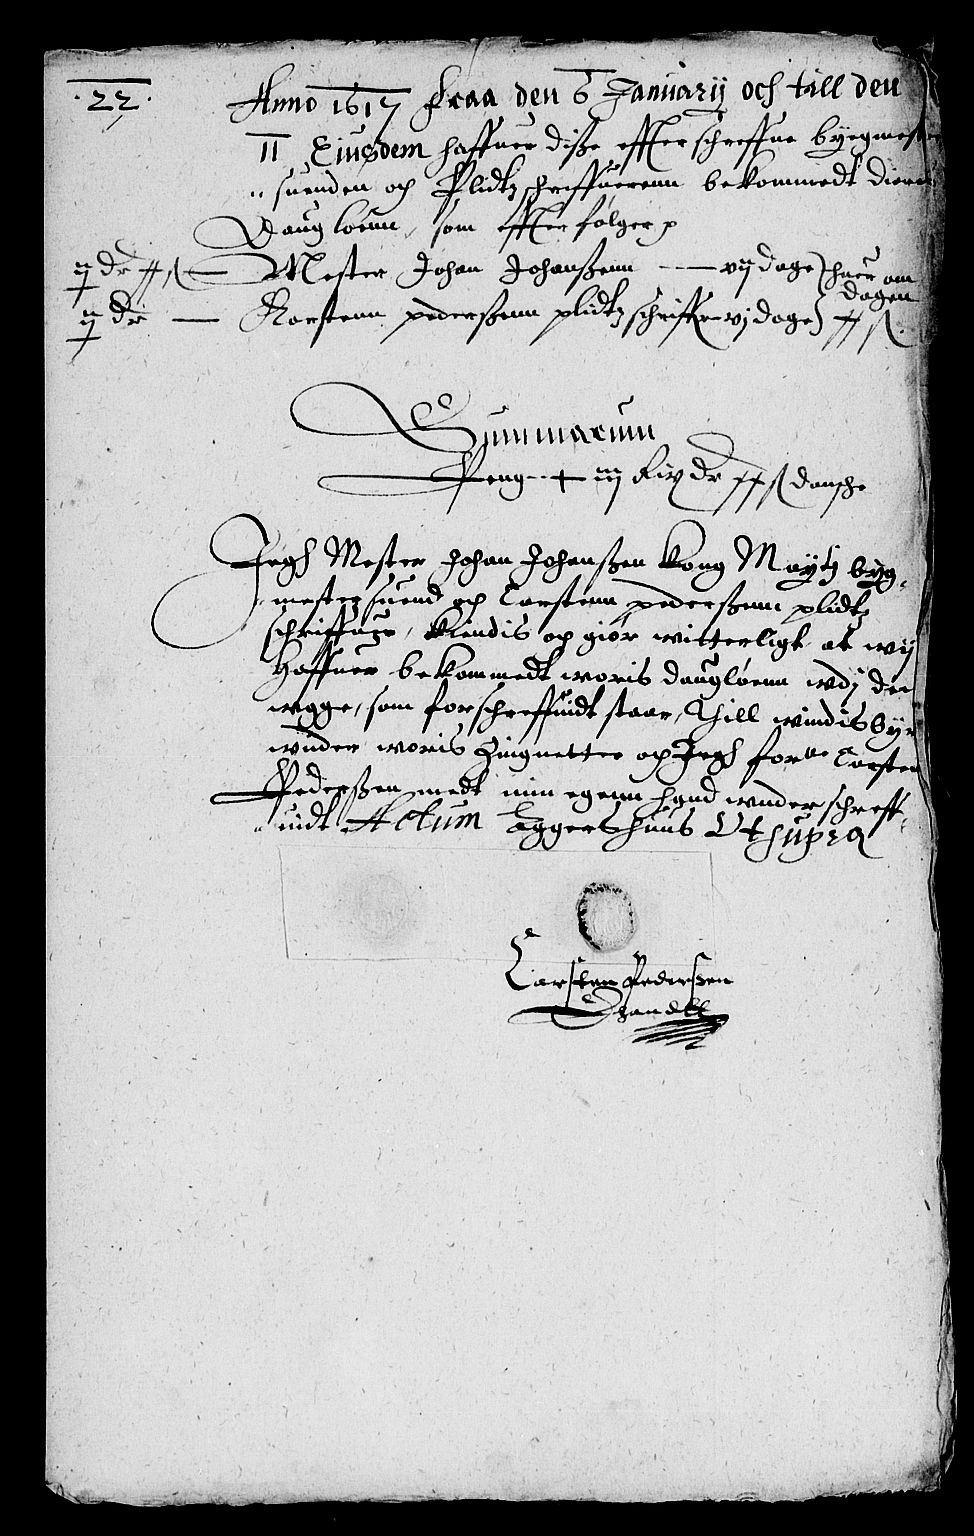 .22.
Anno 1617 Fraa den 6 Januarij och till den
11 Eiusdem haffuer diße effterschreffne byegmester
suenden och Plidtzschriffuerenn bekommedt dieris
Daugloenn, som effter følger
ij dr Mester Johan Johanßenn — vij dage huer om dagen
ij dr — Karstenn pederßenn plidtzschriffr vj dage
Summarum
Peng iij dr ß danske
Jegh Mester Johan Johanßen Kong Maytz byg-
mestersuend och Carstenn pederßenn plidtz
schriffuer, Kiendis og giør witterligt at wij
Haffuer bekommedt woris daugløenn wdj den
wgge, som forschreffuidt staar, Thill windisbyr
wnder woris Zingnetter og Jegh forne Carsten
Pederßen medt min egenn hand wnderschreff-
uidt Actum Aggershuus Vt supra
Carsten Pederßen